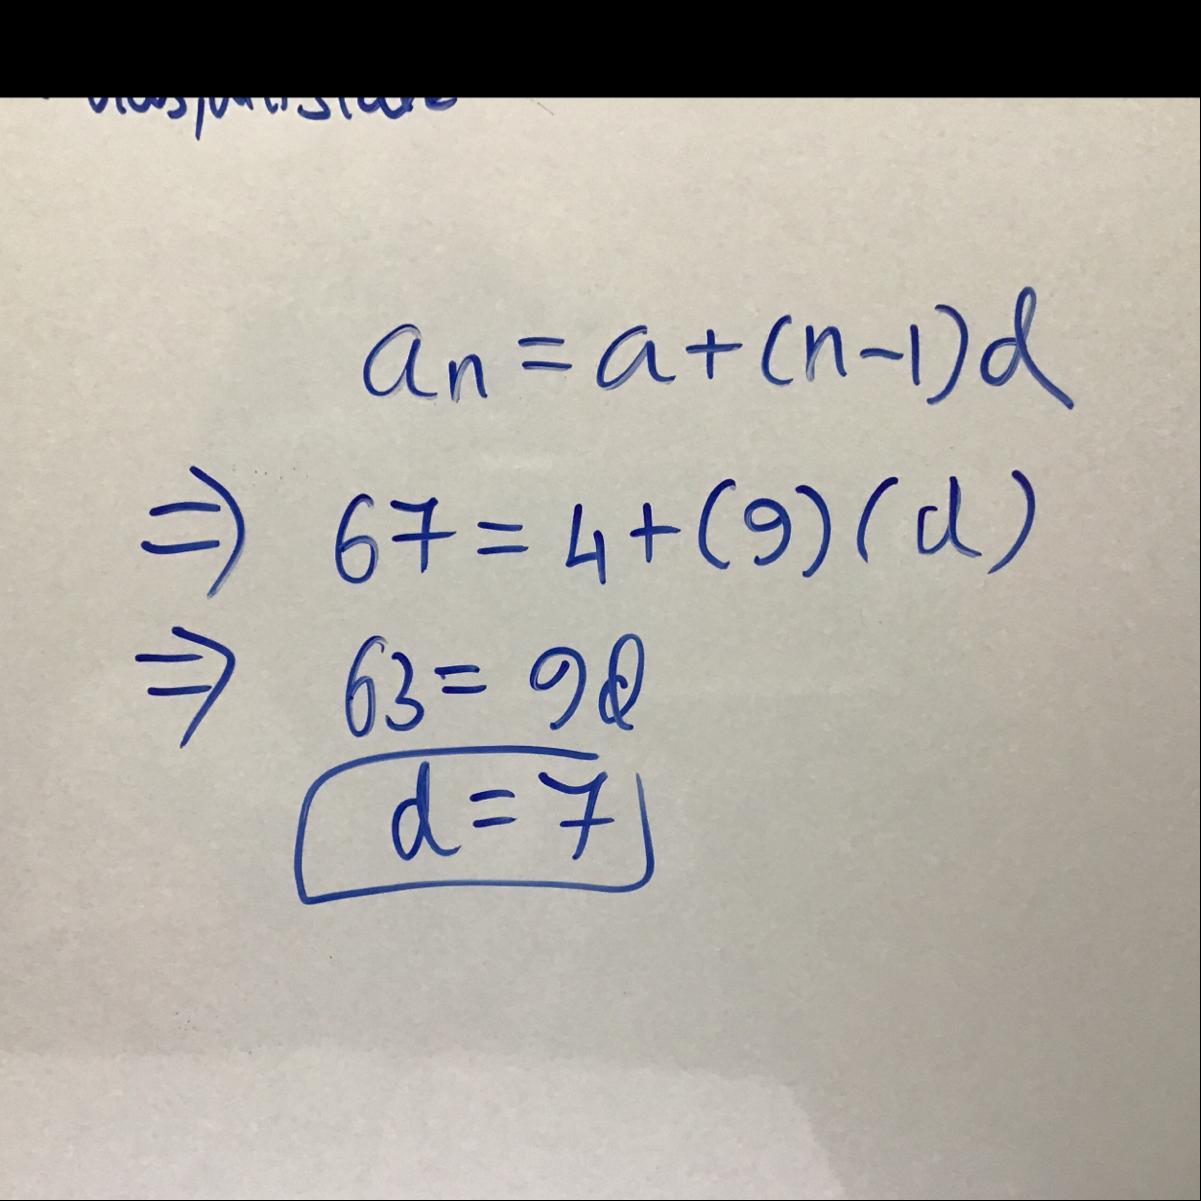 an = a + (n-1)d
⇒ 67 = 4 + (9)(d)
⇒ 63 = 9d
d = 7